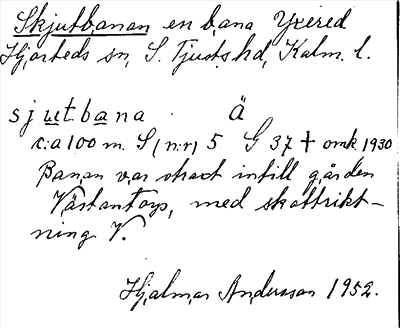 Skjutbanan en bana Yxered
Hjorteds sn, S. Tjusts hd, Kalm. l.
sjutbana Ä
c:a 100 m. S (n:r) 5 G 37 † omk. 1930
Banan var strax intill gården
Västantorp, med skottrikt-
ning V.
Hjalmar Andersson 1952.